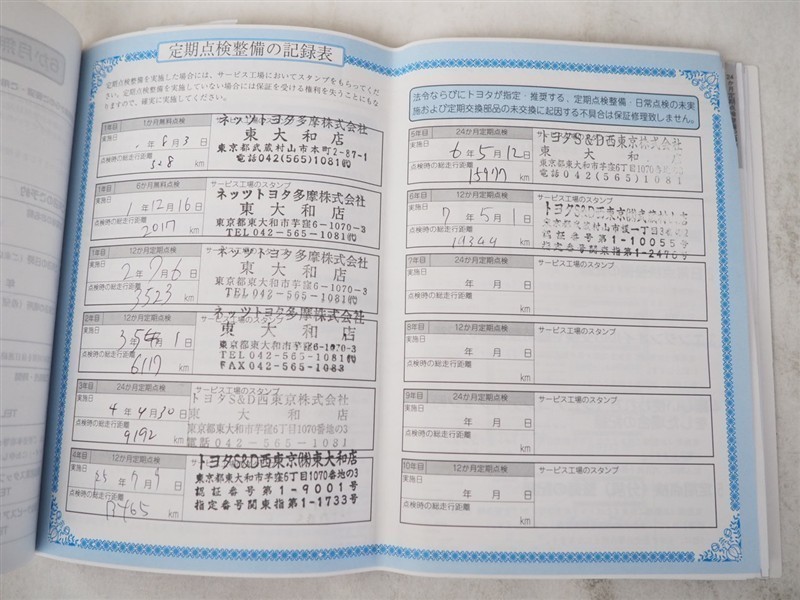 定期点検整備の記録表
定期点検整備を実施した場合には、サービス工場においてスタンプをもらってくだ
さい。定期点検整備を実施していない場合には保証を受ける権利を失うことにもな
りますので、確実に実施してください。
1年目 1か月無料点検
実施日 年 6月 3日
点検時の総走行距離
328 km
ネッツトヨタ多摩株式会社
東大和店
東京都武蔵村山市本町2-87-1
電話042(565)1081㈹
1年目 6か月無料点検
実施日 1年 12月 16日
点検時の総走行距離
2017 km
サービス工場のスタンプ
ネッツトヨタ多摩株式会社
東大和店
東京都東大和市芋窪6-1070-3
TEL 042-565-1081㈹
1年目 12か月定期点検
実施日 2年 7月 6日
点検時の総走行距離
3523 km
ネッツトヨタ多摩株式会社
東大和店
東京都東大和市芋窪6-1070-3
TEL042-565-1081㈹
2年目 12か月定期点検
実施日 3年 月 1日
点検時の総走行距離
6117 km
ネッツトヨタ多摩株式会社
東大和店
東京都東大和市芋窪6-1070-3
TEL042-565-1081㈹
FAX042-565-1083
3年目 24か月定期点検
実施日 4年 4月 30日
点検時の総走行距離
9192 km
サービス工場のスタンプ
トヨタS&D西東京株式会社
東大和店
東京都東大和市芋窪6丁目1070番地の3
電話042-565-1081
4年目 12か月定期点検
実施日 年 7月 日
点検時の総走行距離
km
トヨタS&D西東京㈱東大和店
東京都東大和市芋窪6丁目1070番地の3
認証番号第1-9001号
指定番号関東指第1-1733号
法令ならびにトヨタが指定・推奨する、定期点検整備・日常点検の未実
施および定期交換部品の未交換に起因する不具合は保証修理致しません。
5年目 24か月定期点検
実施日 6年 5月 12日
点検時の総走行距離
15977 km
トヨタS&D西東京株式会社
東大和店
東京都東大和市芋窪6丁目1070番地の3
電話042(565)1081
6年目 12か月定期点検
実施日 7年 5月 1日
点検時の総走行距離
km
サービス工場のスタンプ
トヨタS&D西東京㈱武蔵村山店
認証番号第1-10055号
7年目 24か月定期点検
実施日 年 月 日
点検時の総走行距離
km
サービス工場のスタンプ
8年目 12か月定期点検
実施日 年 月 日
点検時の総走行距離
km
サービス工場のスタンプ
9年目 24か月定期点検
実施日 年 月 日
点検時の総走行距離
km
サービス工場のスタンプ
10年目 12か月定期点検
実施日 年 月 日
点検時の総走行距離
km
サービス工場のスタンプ